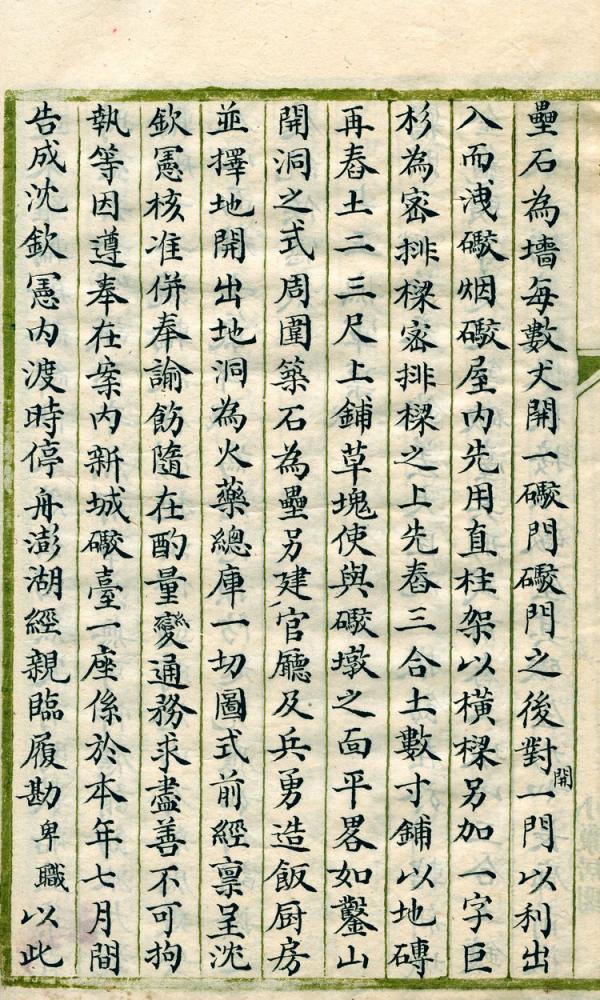 壘石為墻每數丈開一礮門礮門之後對開一門以利出
入而洩礮烟礮屋内先用直柱架以橫樑另加一字巨
杉為密排樑密排樑之上先舂三合土數寸鋪以地磚
再舂土二三尺上鋪草塊使與礮墩之面平畧如鑿山
開洞之式周圍築石為壘另建官廳及兵勇造飯厨房
並擇地開出地洞為火藥總庫一切圖式前經禀呈沈
欽憲核准併奉諭飭隨在酌量變通務求盡善不可拘
執等因遵奉在案内新城礮臺一座係於本年七月間
告成沈欽憲内渡時停舟澎湖經親臨履勘卑職以此